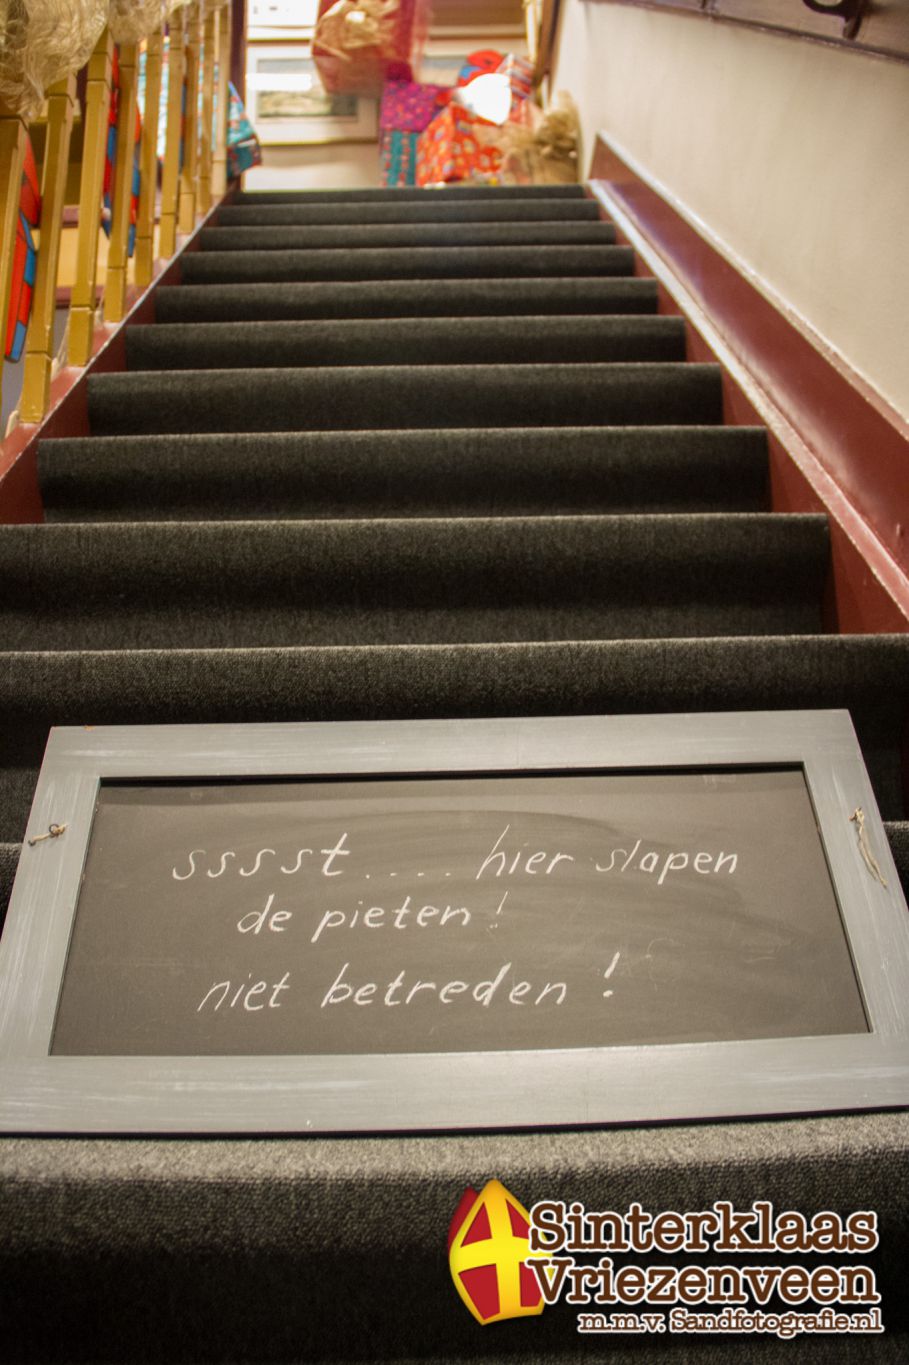 sssst..... hier slapen
de pieten!
niet betreden!
Sinterklaas
Vriezenveen
m.m.v. Sandfotografie.nl